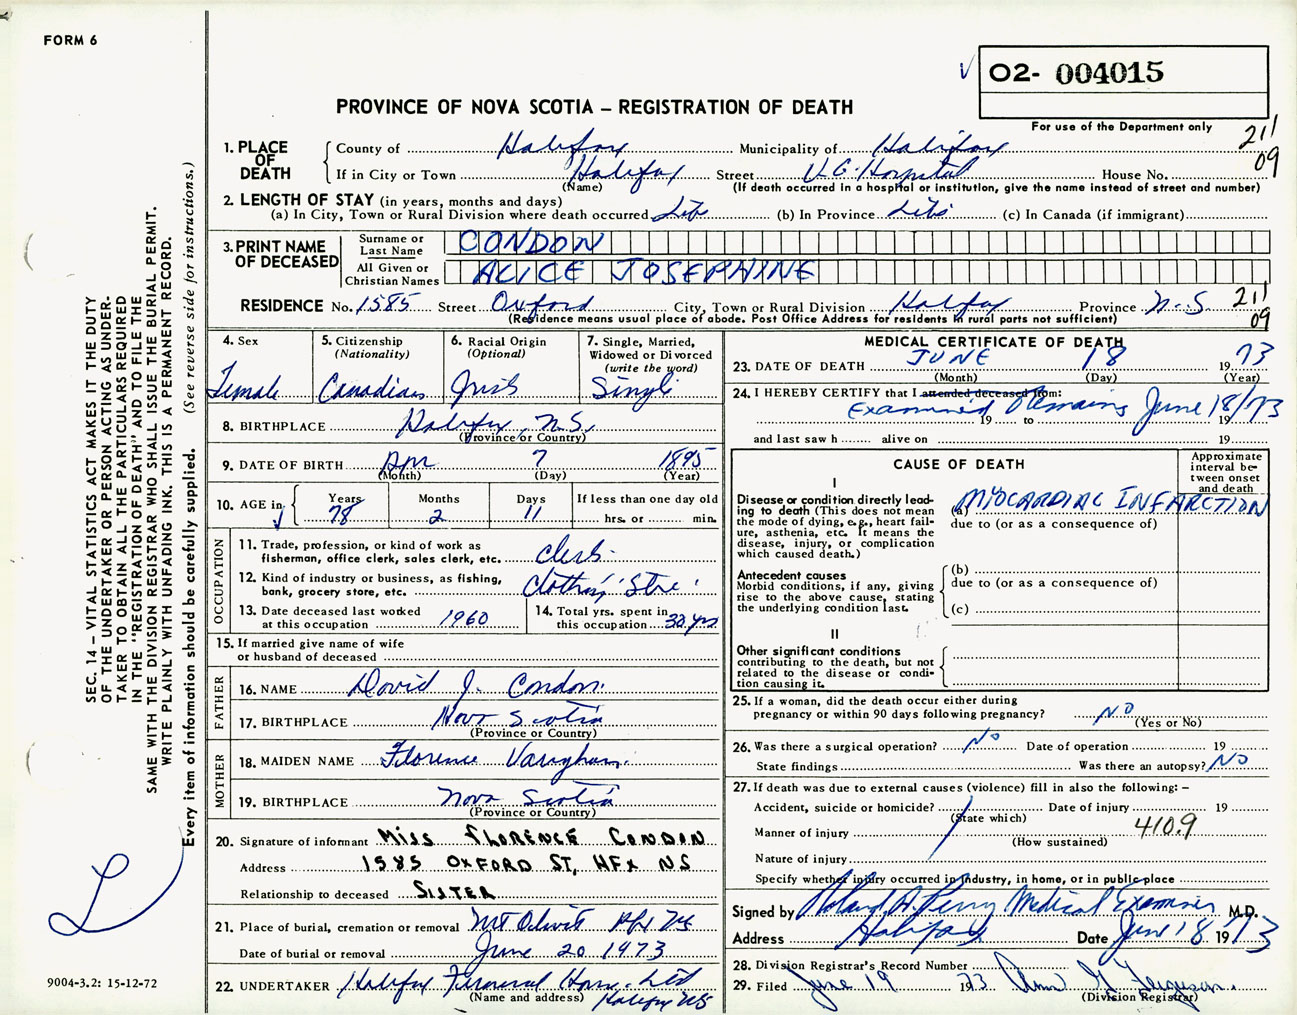 FORM 6
O2- 004015
PROVINCE OF NOVA SCOTIA – REGISTRATION OF DEATH
For use of the Department only
211
09
1. PLACE OF DEATH
County of Halifax Municipality of Halifax
If in City or Town Halifax Street V.G. Hospital House No.
(Name) (If death occurred in a hospital or institution, give the name instead of street and number)
2. LENGTH OF STAY (in years, months and days)
(a) In City, Town or Rural Division where death occurred Life (b) In Province Life (c) In Canada (if immigrant)
3. PRINT NAME OF DECEASED
Surname or Last Name CONDON
All Given or Christian Names ALICE JOSEPHINE
RESIDENCE No. 1585 Street Oxford City, Town or Rural Division Halifax Province N.S. 211
(Residence means usual place of abode. Post Office Address for residents in rural parts not sufficient) 09
4. Sex
Female
5. Citizenship
(Nationality)
Canadian
6. Racial Origin
(Optional)
Irish
7. Single, Married,
Widowed or Divorced
(write the word)
Single
8. BIRTHPLACE Halifax, N.S.
(Province or Country)
9. DATE OF BIRTH Apr 7 1895
(Month) (Day) (Year)
10. AGE in
Years 78
Months 2
Days 11
If less than one day old
hrs. or min.
OCCUPATION
11. Trade, profession, or kind of work as
fisherman, office clerk, sales clerk, etc. Clerk
12. Kind of industry or business, as fishing,
bank, grocery store, etc. Clothing Store
13. Date deceased last worked
at this occupation 1960
14. Total yrs. spent in
this occupation 32 yrs
15. If married give name of wife
or husband of deceased
FATHER
16. NAME David J. Condon
17. BIRTHPLACE Nova Scotia
(Province or Country)
MOTHER
18. MAIDEN NAME Florence Vaughan
19. BIRTHPLACE Nova Scotia
(Province or Country)
20. Signature of informant MISS FLORENCE CONDON
Address 1585 OXFORD ST, HFX NS
Relationship to deceased SISTER
21. Place of burial, cremation or removal Mt Olivet Hfx NS
Date of burial or removal June 20 1973
22. UNDERTAKER Halifax Funeral Home Ltd
(Name and address) Halifax NS
MEDICAL CERTIFICATE OF DEATH
23. DATE OF DEATH JUNE 18 1973
(Month) (Day) (Year)
24. I HEREBY CERTIFY that I attended deceased from:
Examined Remains June 18/73
19 to 19
and last saw h alive on 19
CAUSE OF DEATH
Approximate
interval be-
tween onset
and death
I
Disease or condition directly lead-
ing to death (This does not mean
the mode of dying, e.g., heart fail-
ure, asthenia, etc. It means the
disease, injury, or complication
which caused death.)
(a) MYOCARDIAC INFARCTION
due to (or as a consequence of)
Antecedent causes
Morbid conditions, if any, giving
rise to the above cause, stating
the underlying condition last.
(b)
due to (or as a consequence of)
(c)
II
Other significant conditions
contributing to the death, but not
related to the disease or condi-
tion causing it.
25. If a woman, did the death occur either during
pregnancy or within 90 days following pregnancy? NO
(Yes or No)
26. Was there a surgical operation? No Date of operation 19
State findings Was there an autopsy? NO
27. If death was due to external causes (violence) fill in also the following: –
Accident, suicide or homicide? Date of injury 19
(State which)
Manner of injury 410.9
(How sustained)
Nature of injury
Specify whether injury occurred in industry, in home, or in public place
Signed by Roland A. Perry Medical Examiner M.D.
Address Halifax Date June 18 1973
28. Division Registrar's Record Number
29. Filed June 19 1973 Ann G Ferguson
(Division Registrar)
SEC. 14 – VITAL STATISTICS ACT MAKES IT THE DUTY
OF THE UNDERTAKER OR PERSON ACTING AS UNDER-
TAKER TO OBTAIN ALL THE PARTICULARS REQUIRED
IN THE "REGISTRATION OF DEATH" AND TO FILE THE
SAME WITH THE DIVISION REGISTRAR WHO SHALL ISSUE THE BURIAL PERMIT.
WRITE PLAINLY WITH UNFADING INK. THIS IS A PERMANENT RECORD.
Every item of information should be carefully supplied. (See reverse side for instructions.)
9004-3.2: 15-12-72